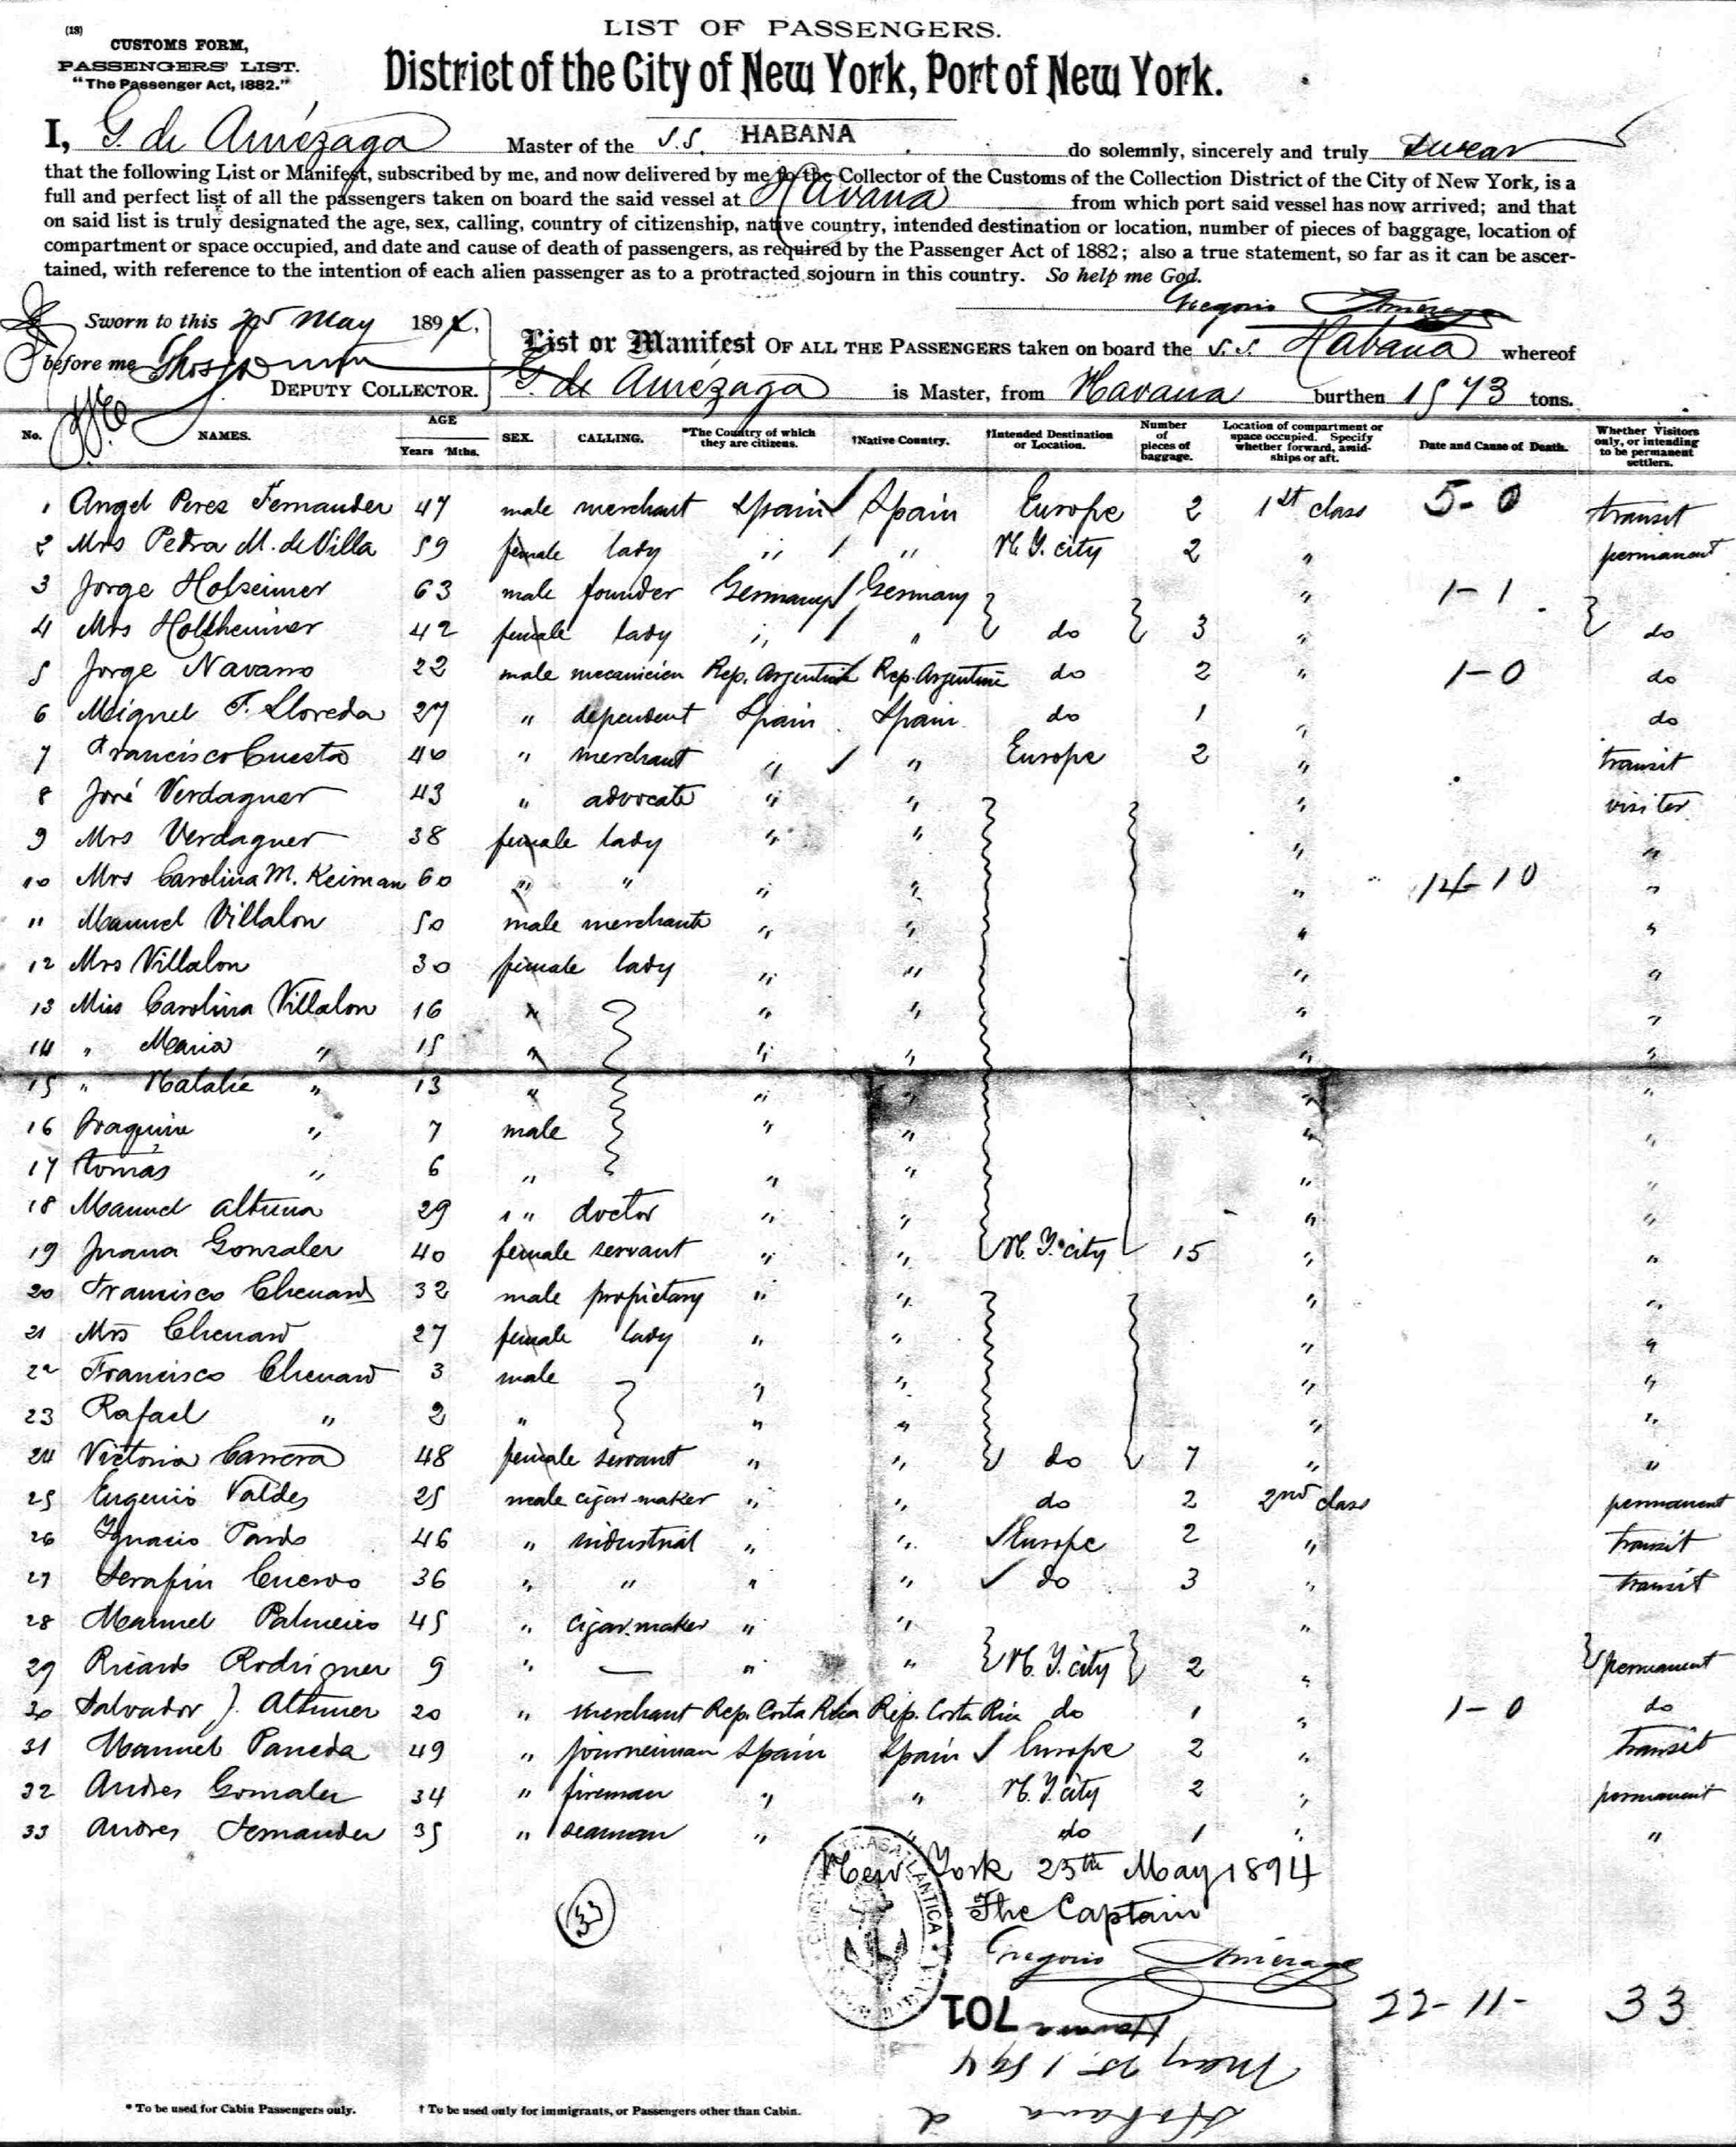 (18)
LIST OF PASSENGERS.
CUSTOMS FORM,
PASSENGERS' LIST.
"The Passenger Act, 1882."
District of the City of New York, Port of New York.
I, G. de Amézaga Master of the S.S. HABANA do solemnly, sincerely and truly swear
that the following List or Manifest, subscribed by me, and now delivered by me to the Collector of the Customs of the Collection District of the City of New York, is a
full and perfect list of all the passengers taken on board the said vessel at Havana from which port said vessel has now arrived; and that
on said list is truly designated the age, sex, calling, country of citizenship, native country, intended destination or location, number of pieces of baggage, location of
compartment or space occupied, and date and cause of death of passengers, as required by the Passenger Act of 1882; also a true statement, so far as it can be ascer-
tained, with reference to the intention of each alien passenger as to a protracted sojourn in this country. So help me God.
Gregorio Amézaga
Sworn to this 25 May 1894,
before me
DEPUTY COLLECTOR.
List or Manifest OF ALL THE PASSENGERS taken on board the S.S. Habana whereof
G. de Amézaga is Master, from Havana burthen 1573 tons.
No. NAMES. AGE Years Mths. SEX. CALLING. *The Country of which they are citizens. †Native Country. †Intended Destination or Location. Number of pieces of baggage. Location of compartment or space occupied. Specify whether forward, amid-ships or aft. Date and Cause of Death. Whether Visitors only, or intending to be permanent settlers.
1 Angel Perez Fernandez 47 male merchant Spain Spain Europe 2 1st class 5-0 transit
2 Mrs Pedra M. de Villa 59 female lady " " N. Y. city 2 " permanent
3 Jorge Holzeimer 63 male founder Germany Germany " 1-1
4 Mrs Holtheimer 42 female lady " " do 3 " do
5 Jorge Navarro 22 male mecanicien Rep. Argentine Rep. Argentine do 2 " 1-0 do
6 Miguel F. Lloreda 27 " dependent Spain Spain do 1 " do
7 Francisco Cuesta 40 " merchant " " Europe 2 " transit
8 José Verdaguer 43 " advocate " " " visiter
9 Mrs Verdaguer 38 female lady " " " "
10 Mrs Carolina M. Keiman 60 " " " " " 14-10 "
11 Manuel Villalon 50 male merchant " " " "
12 Mrs Villalon 30 female lady " " " "
13 Miss Carolina Villalon 16 " " " " "
14 " Maria " 15 " " " " "
15 " Natalie " 13 " " " " "
16 Joaquin " 7 male " " " "
17 Tomás " 6 " " " " "
18 Manuel Altuna 29 " " doctor " " " "
19 Juana Gonzalez 40 female servant " " N. Y. city 15 " "
20 Francisco Chenard 32 male propietary " " " "
21 Mrs Chenard 27 female lady " " " "
22 Francisco Chenard 3 male " " " "
23 Rafael " 2 " " " " "
24 Victoria Carrera 48 female servant " " do 7 " "
25 Eugenio Valdes 25 male cigar maker " " do 2 2nd class permanent
26 Ignacio Pardo 46 " industrial " " Europe 2 " transit
27 Serafin Cuervo 36 " " " " do 3 " transit
28 Manuel Palmeiro 45 " cigar maker " " "
29 Ricardo Rodriguez 9 " — " " N. Y. city 2 " permanent
30 Salvador J. Altuner 20 " merchant Rep. Costa Rica Rep. Costa Rica do 1 " 1-0 do
31 Manuel Paneda 49 " journeiman Spain Spain Europe 2 " transit
32 Andres Gonzalez 34 " fireman " " N. Y. city 2 " permanent
33 Andres Fernandez 35 " seaman " " do 1 " "
New York 25th May 1894
The Captain
33
Gregorio Amézaga
22-11- 33
701
Havana
May 25 1894
Habana
* To be used for Cabin Passengers only. † To be used only for immigrants, or Passengers other than Cabin.